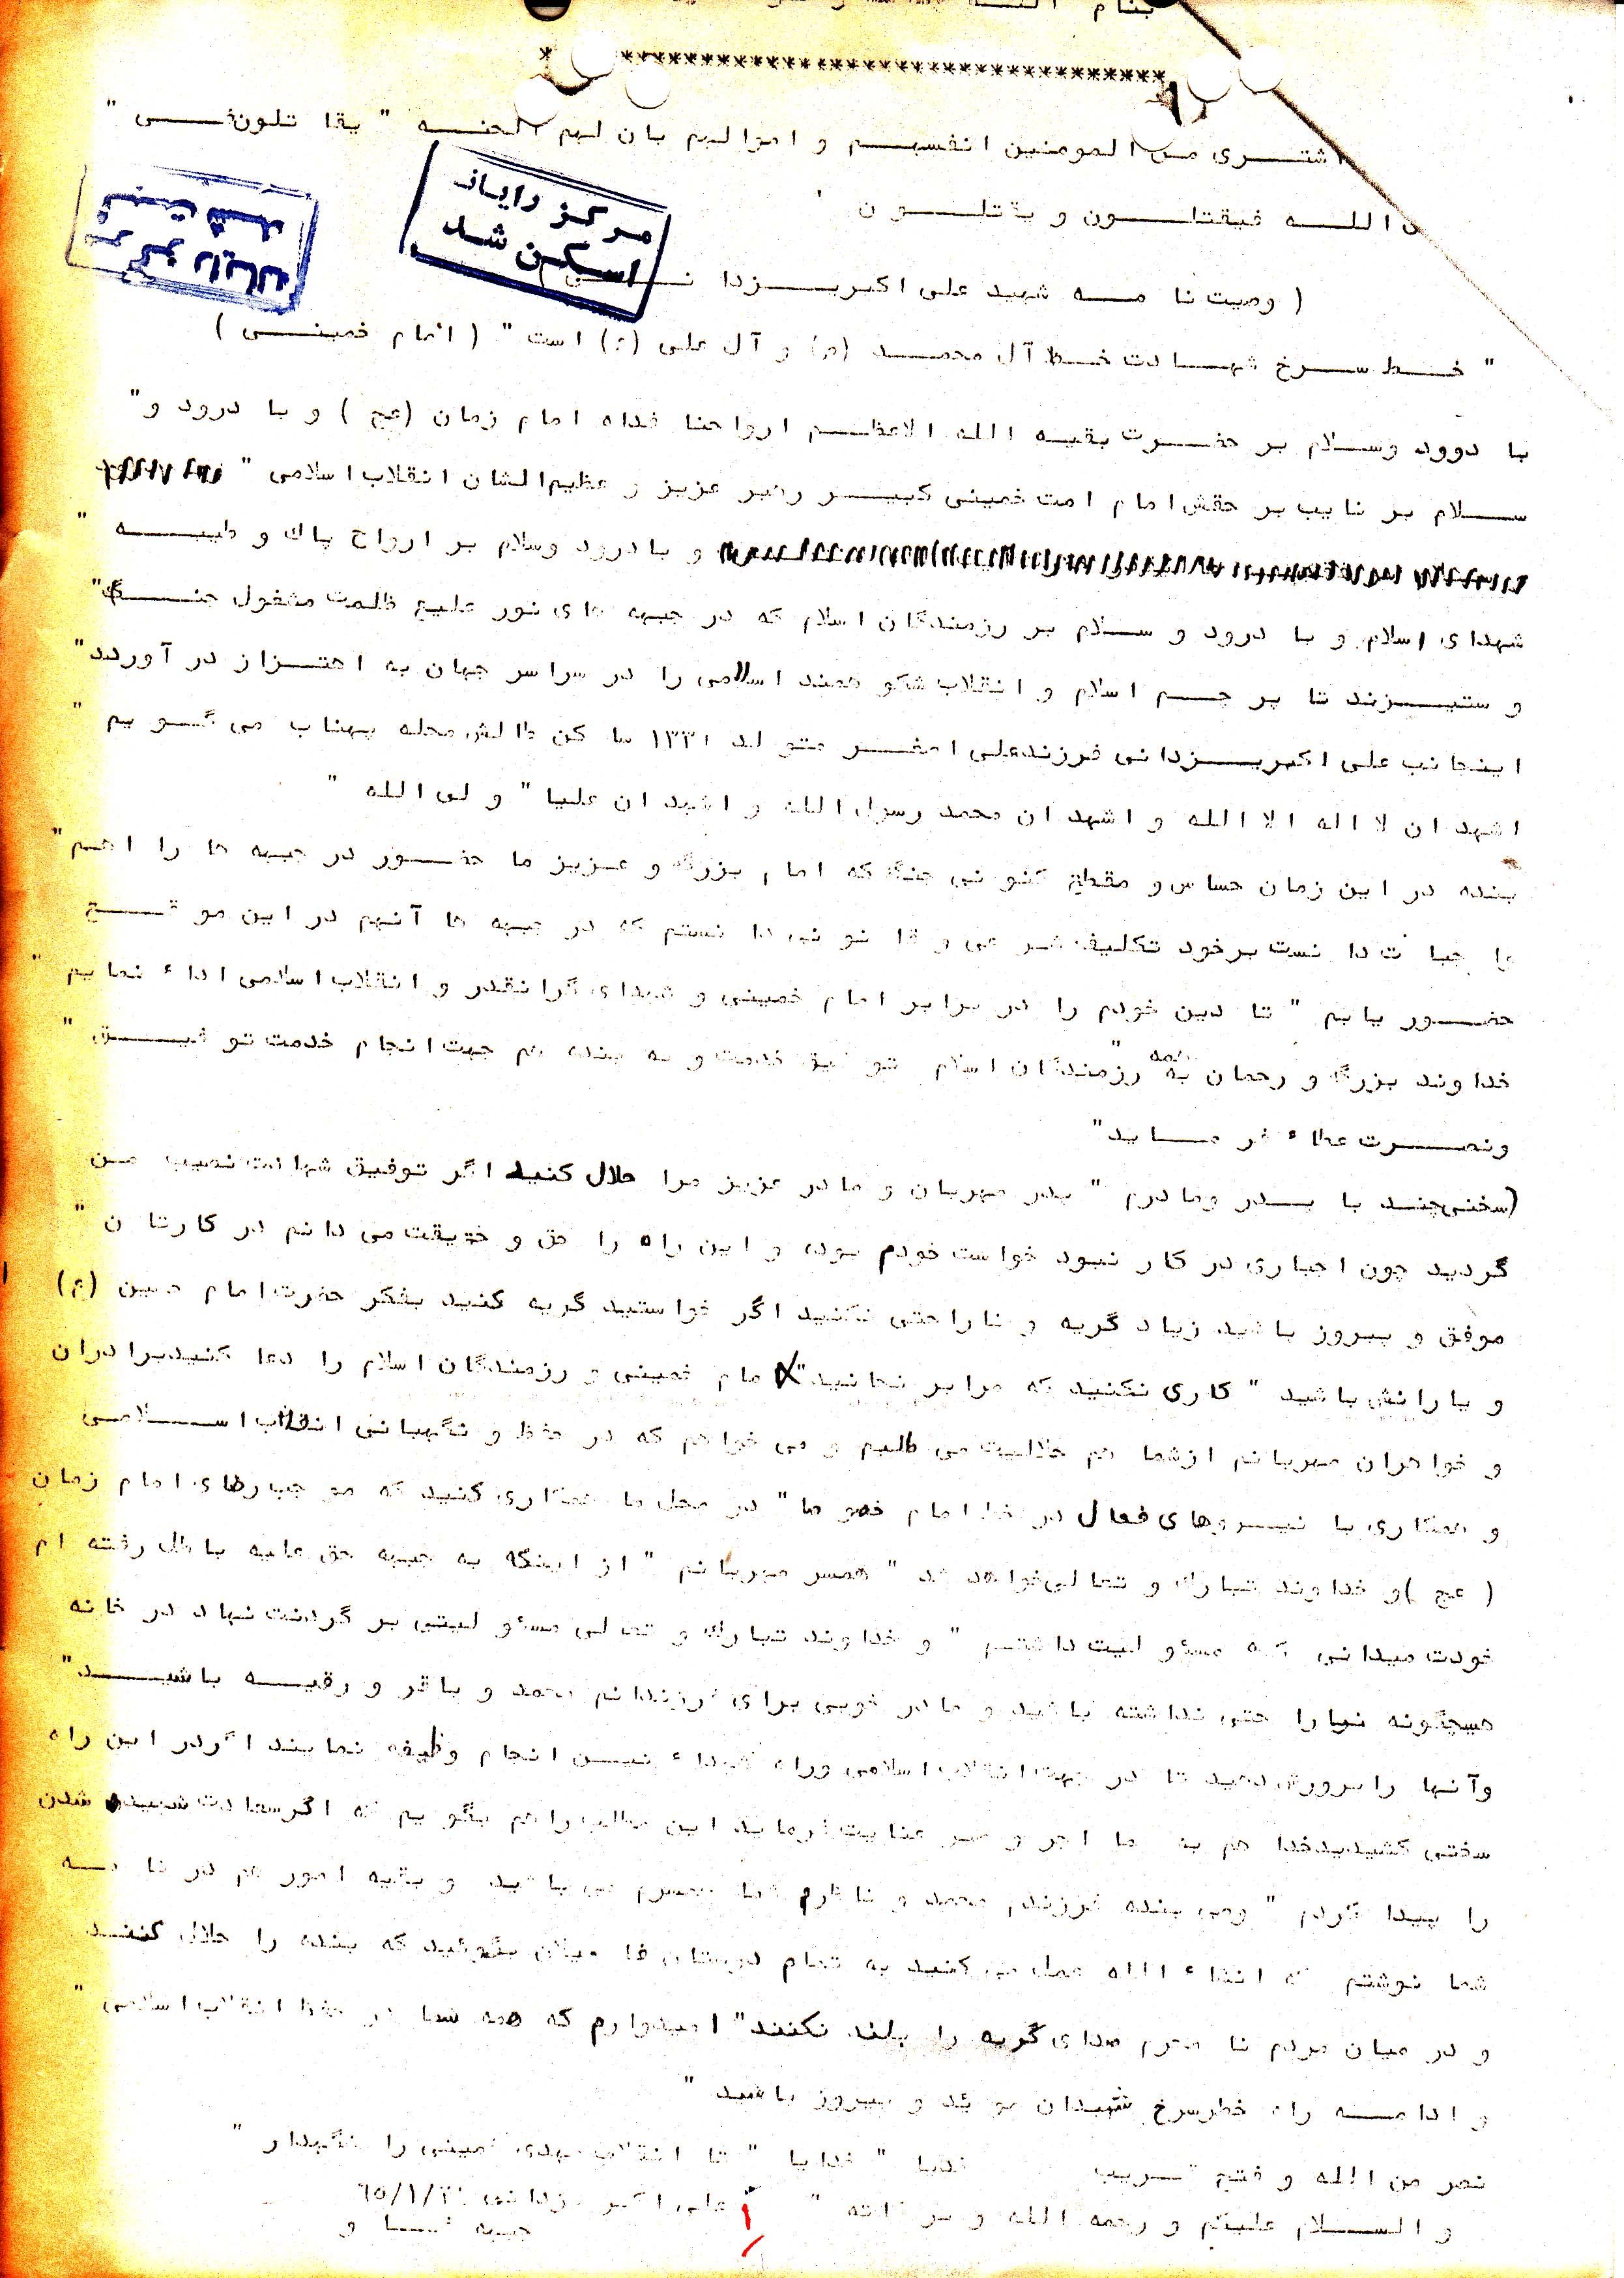 بنام
*********************************
اشتری من المومنین انفسهم و اموالهم بان لهم الجنه " یقا تلون فی "
الله فیقتلون و یقتلون
مرکز رایانه
اسکن شد
مرکز رایانه
ثبت شد
( وصیت نا مه شهید علی اکبر یزدا نی
" خط سرخ شهادت خط آل محمد (ص) و آل علی (ع) است " ( امام خمینی )
با دوود وسلام بر حضرت بقیه الله الاعظم ارواحنا فداه امام زمان (عج ) و با درود و"
سلام بر نایب بر حقش امام امت خمینی کبیر رهبر عزیز و عظیم الشان انقلاب اسلامی "
و با درود وسلام بر ارواح پاک و طیبه "
شهدای اسلام و با درود و سلام بر رزمندگان اسلام که در جبهه های نور علیه ظلمت مشغول جنگ"
و ستیزند تا پر چم اسلام و انقلاب شکو همند اسلامی را در سراسر جهان به اهتزاز در آوردند"
اینجانب علی اکبر یزدانی فرزند علی اصغر متولد ۱۳۳۱ سا کن طالش محله پهناب می گویم "
اشهد ان لا اله الا الله و اشهد ان محمد رسول الله و اشهد ان علیا " ولی الله "
بنده در این زمان حساس و مقطع کنونی جنگ که امام بزرگ و عزیز ما حضور در جبهه ها را اهم"
وا جبا ت دا نست برخود تکلیف شرعی و قا نونی دا نستم که در جبهه ها آنهم در این موقع
حضور یابم " تا دین خودم را در برابر امام خمینی و شهدای گرانقدر و انقلاب اسلامی اداء نمایم "
خداوند بزرگ و رحمان به همه رزمندگان اسلام توفیق خدمت و به بنده هم جهت انجام خدمت توفیق "
ونصرت عطاء فر ماید"
(سخنی چند با پدر ومادرم " پدر مهربان و مادر عزیز مرا حلال کنید اگر توفیق شهادت نصیب من
گردید چون اجباری در کار نبود خواست خودم بود، و این راه را حق و حقیقت می دانم در کارتا ن "
موفق و پیروز باشید زیاد گریه و ناراحتی نکنید اگر خواستید گریه کنید بفکر حضرت امام حسین (ع)
و یارانش باشید " کاری نکنید که مرا بر نجانید" امام خمینی و رزمندگان اسلام را دعا کنید برادران
و خواهران مهربانم از شما هم حلالیت می طلبم و می خواهم که در حفظ و نگهبانی انقلاب اسلامی
و همکاری با نیروهای فعال در خط امام در محل ما همکاری کنید که امام زمان
( عج )و خداوند تبارک و تعالی خواهد شد " همسر مهربانم " از اینکه به جبهه حق علیه باطل رفته ام
خودت میدانی که مسئو لیت داشتم " و خداوند تبارک و تعالی مسئو لیتی بر گردنت نهاد در خانه
هیچگونه نا را حتی نداشته باشید و مادر خوبی برای فرزندانم محمد و باقر و رقیه باشید"
وآنها را پرورش دهید تا در جهت انقلاب اسلامی وراه شهداء انجام وظیفه نمایند اگر در این راه
سختی کشیدید خدا هم به شما اجر و صبر عنایت فرماید این مطلب را هم بگو یم که اگر سعادت شهید شدن
را پیدا کردم " وصی بنده فرزندم محمد و ناظرم شما همسرم می باشید و بقیه امور هم در نا مه
شما نوشتم که انشاء الله عمل می کنید به تمام دوستان فا میلان بگوئید که بنده را حلال کنند
و در میان مردم نا محرم صدای گریه را بلند نکنند" امیدوارم که همه شما در حفظ انقلاب اسلامی "
و ادامه راه خط سرخ شهیدان و پیروز باشید "
نصر من الله و فتح قریب خدایا " خدایا " تا انقلاب مهدی خمینی را نگهدار "
و السلام علیکم و رحمه الله و بر کاته " علی اکبر یزدانی
جبهه